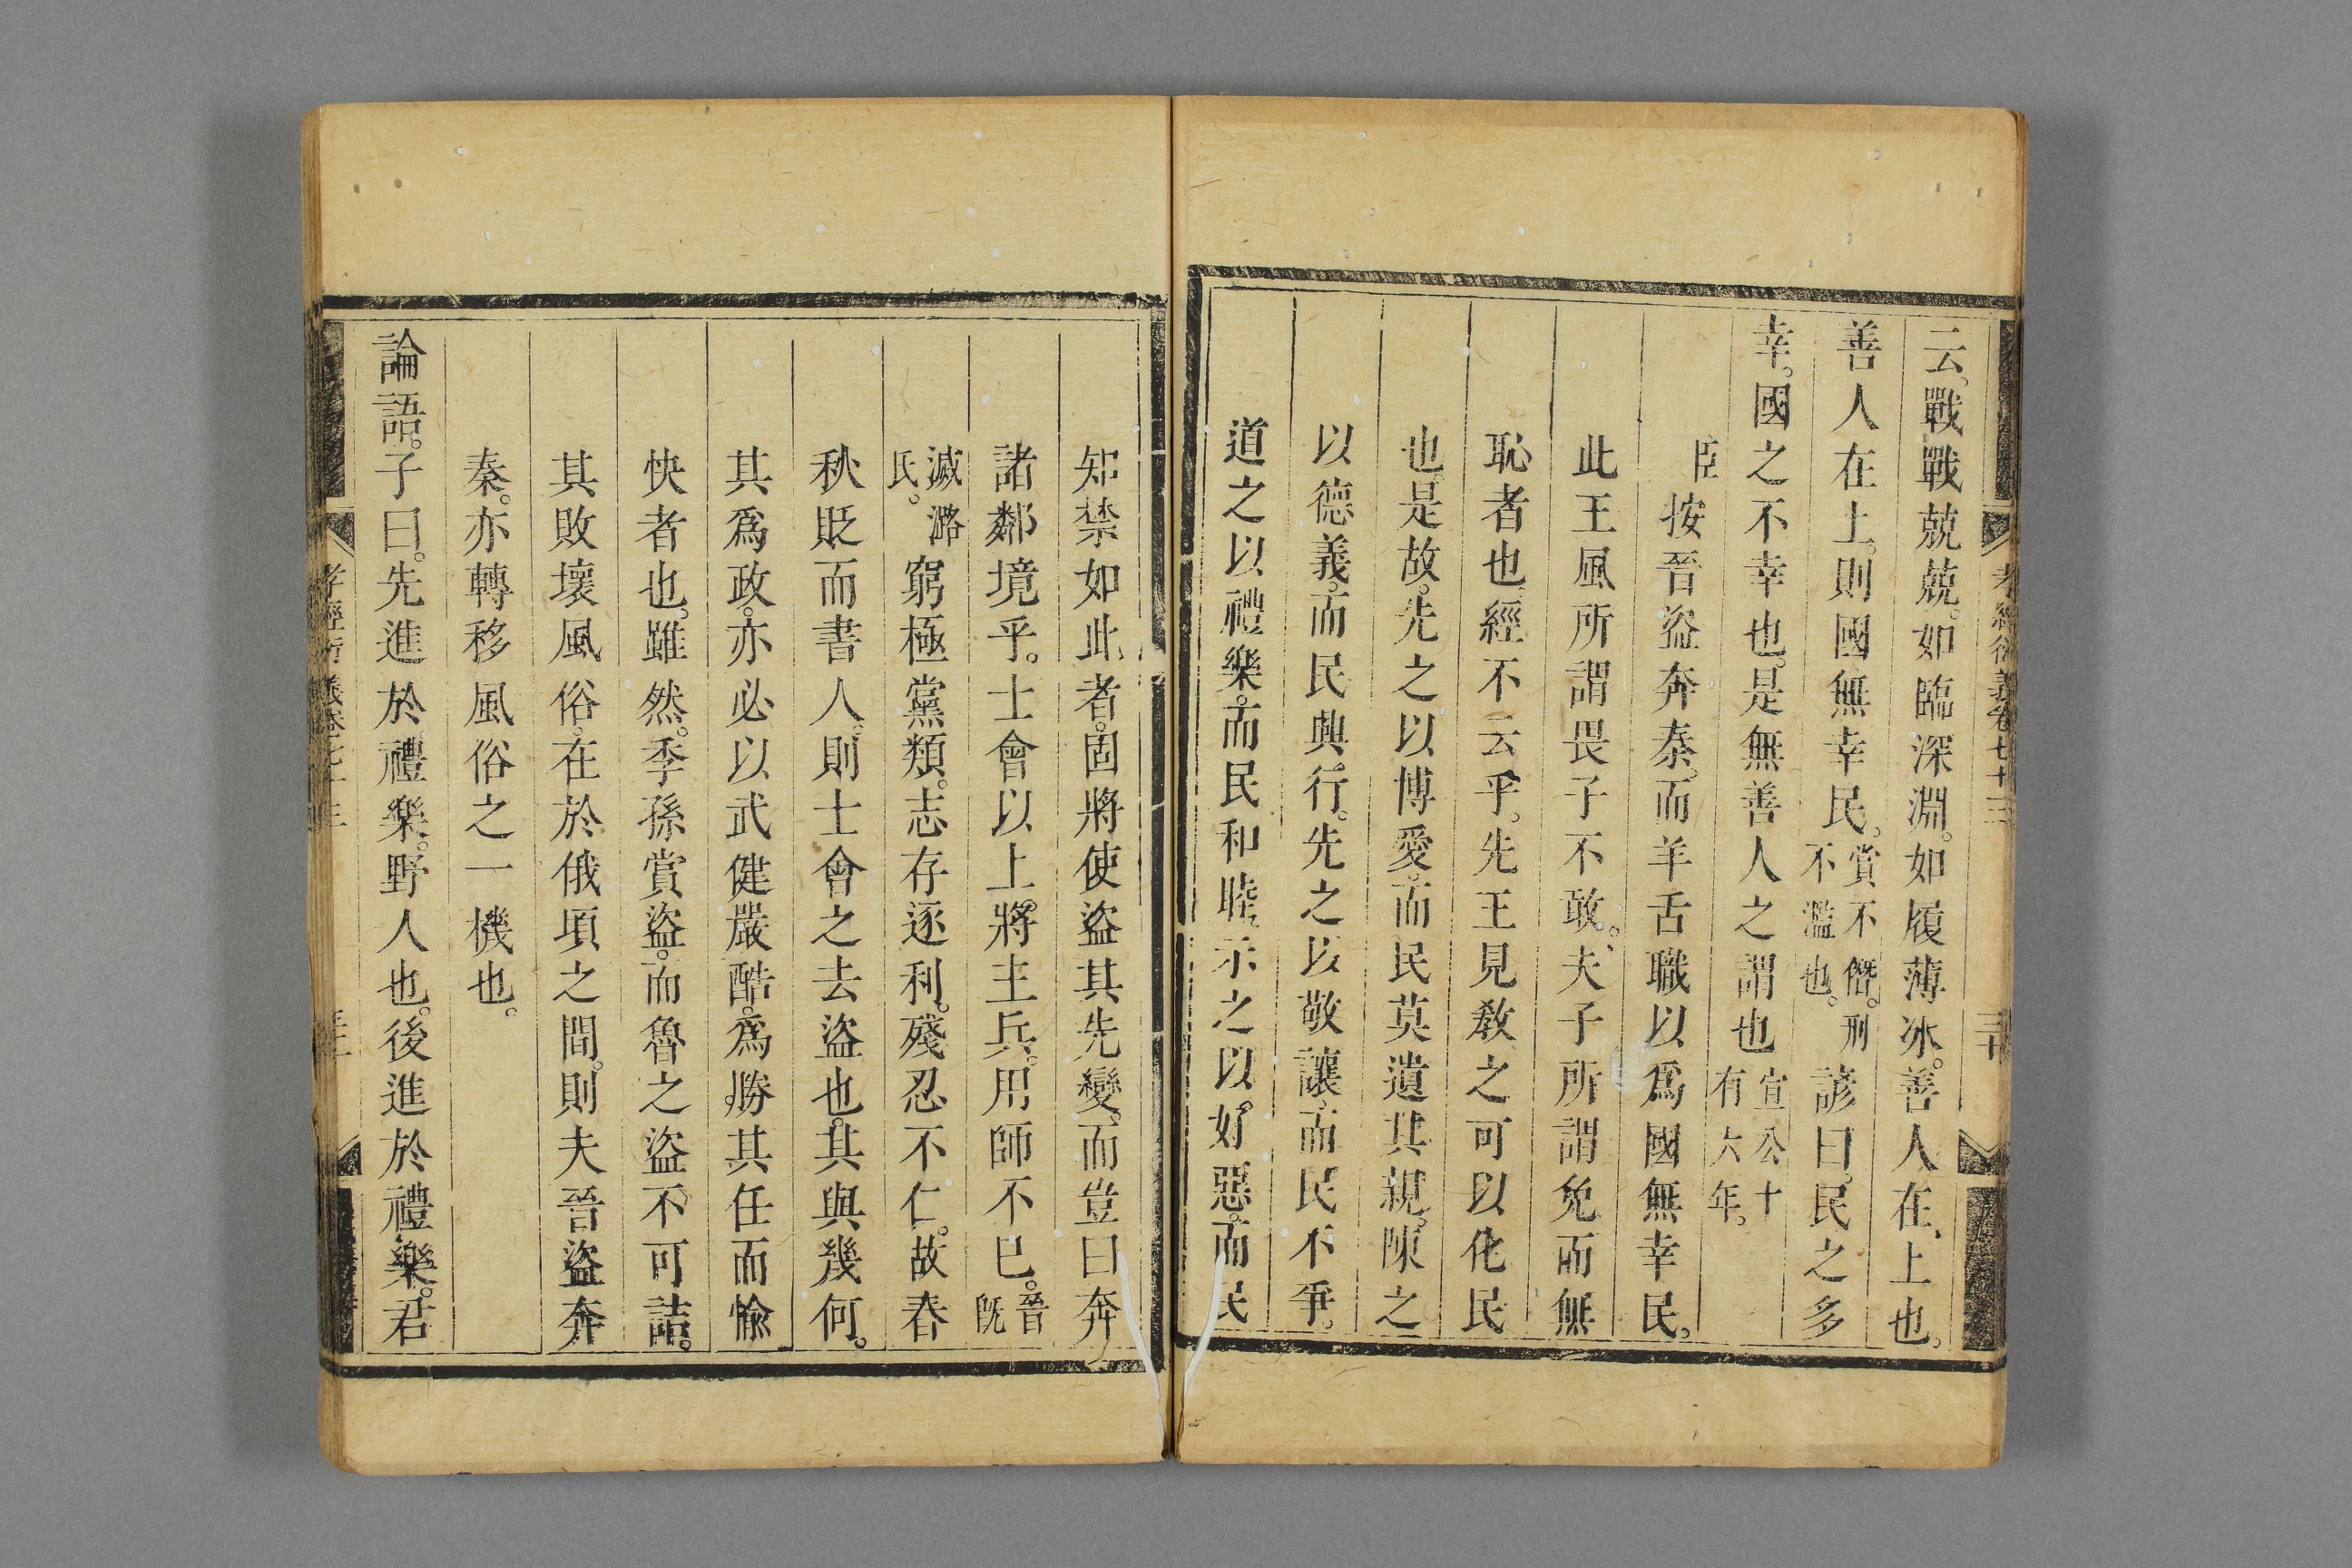 孝經衍義卷七十三
云。戰戰兢兢。如臨深淵。如履薄冰。善人在上也。
善人在上。則國無幸民。賞不僭。刑不濫也。諺曰。民之多
幸。國之不幸也。是無善人之謂也宣公十有六年。
臣按晉盜奔秦。而羊舌職以爲國無幸民。
此王風所謂畏子不敢。夫子所謂免而無
恥者也。經不云乎。先王見敎之可以化民
也。是故。先之以博愛。而民莫遺其親。陳之
以德義。而民興行。先之以敬讓。而民不爭。
道之以禮樂。而民和睦。示之以好惡。而民
知禁如此者。固將使盜其先變。而豈曰奔
諸鄰境乎。士會以上將主兵。用師不已。晉旣
滅潞氏。窮極黨類。志存逐利。殘忍不仁。故春
秋貶而書人。則士會之去盜也。其與幾何。
其爲政。亦必以武健嚴酷。爲勝其任而愉
快者也。雖然。季孫賞盜。而魯之盜不可詰。
其敗壞風俗。在於俄頃之間。則夫晉盜奔
秦。亦轉移風俗之一機也。
論語。子曰。先進於禮樂。野人也。後進於禮樂。君
孝經衍義卷七十三